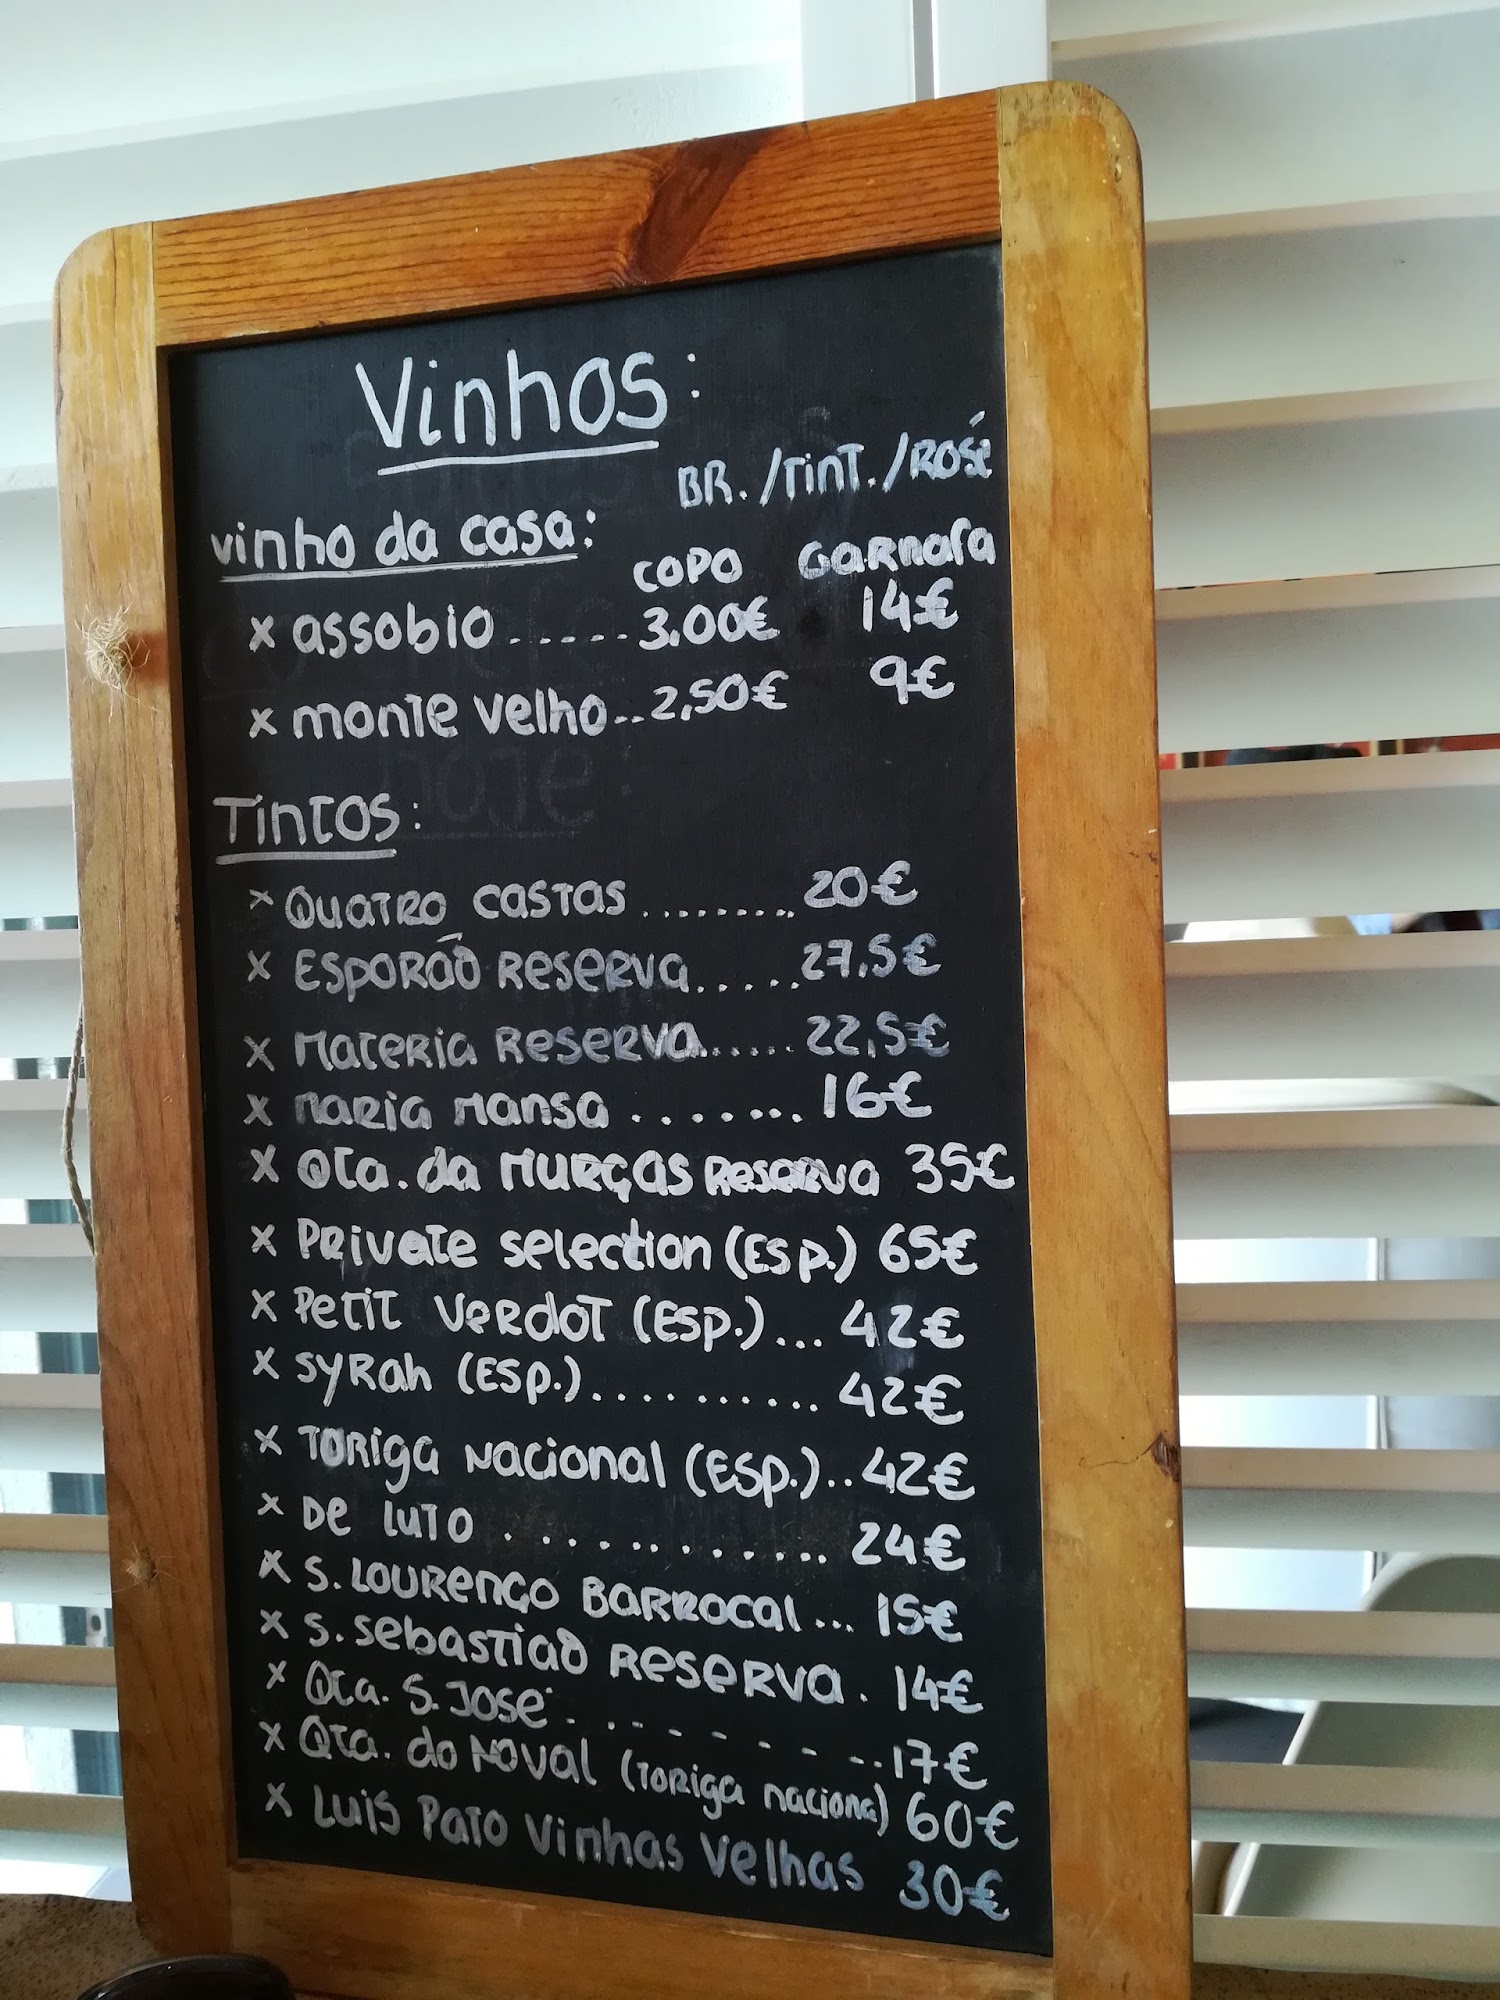 Vinhos:
BR./TINT./ROSÉ
vinho da casa:
COPO GARRAFA
x assobio ..... 3.00€ 14€
x monte velho.. 2,50€ 9€
Tintos:
x Quatro castas ........ 20€
x Esporão Reserva..... 27,5€
x Materia Reserva...... 22,5€
x Maria Mansa ....... 16€
x Qta. da Murças Reserva 35€
x Private selection (Esp.) 65€
x Petit Verdot (Esp.)... 42€
x Syrah (Esp.).......... 42€
x Toriga Nacional (Esp.).. 42€
x De Luto ............ 24€
x S. Lourenço Barrocal... 15€
x S. Sebastião Reserva. 14€
x Qta. S. José......... 17€
x Qta. do Noval (Toriga naciona) 60€
x Luis Pato Vinhas Velhas 30€